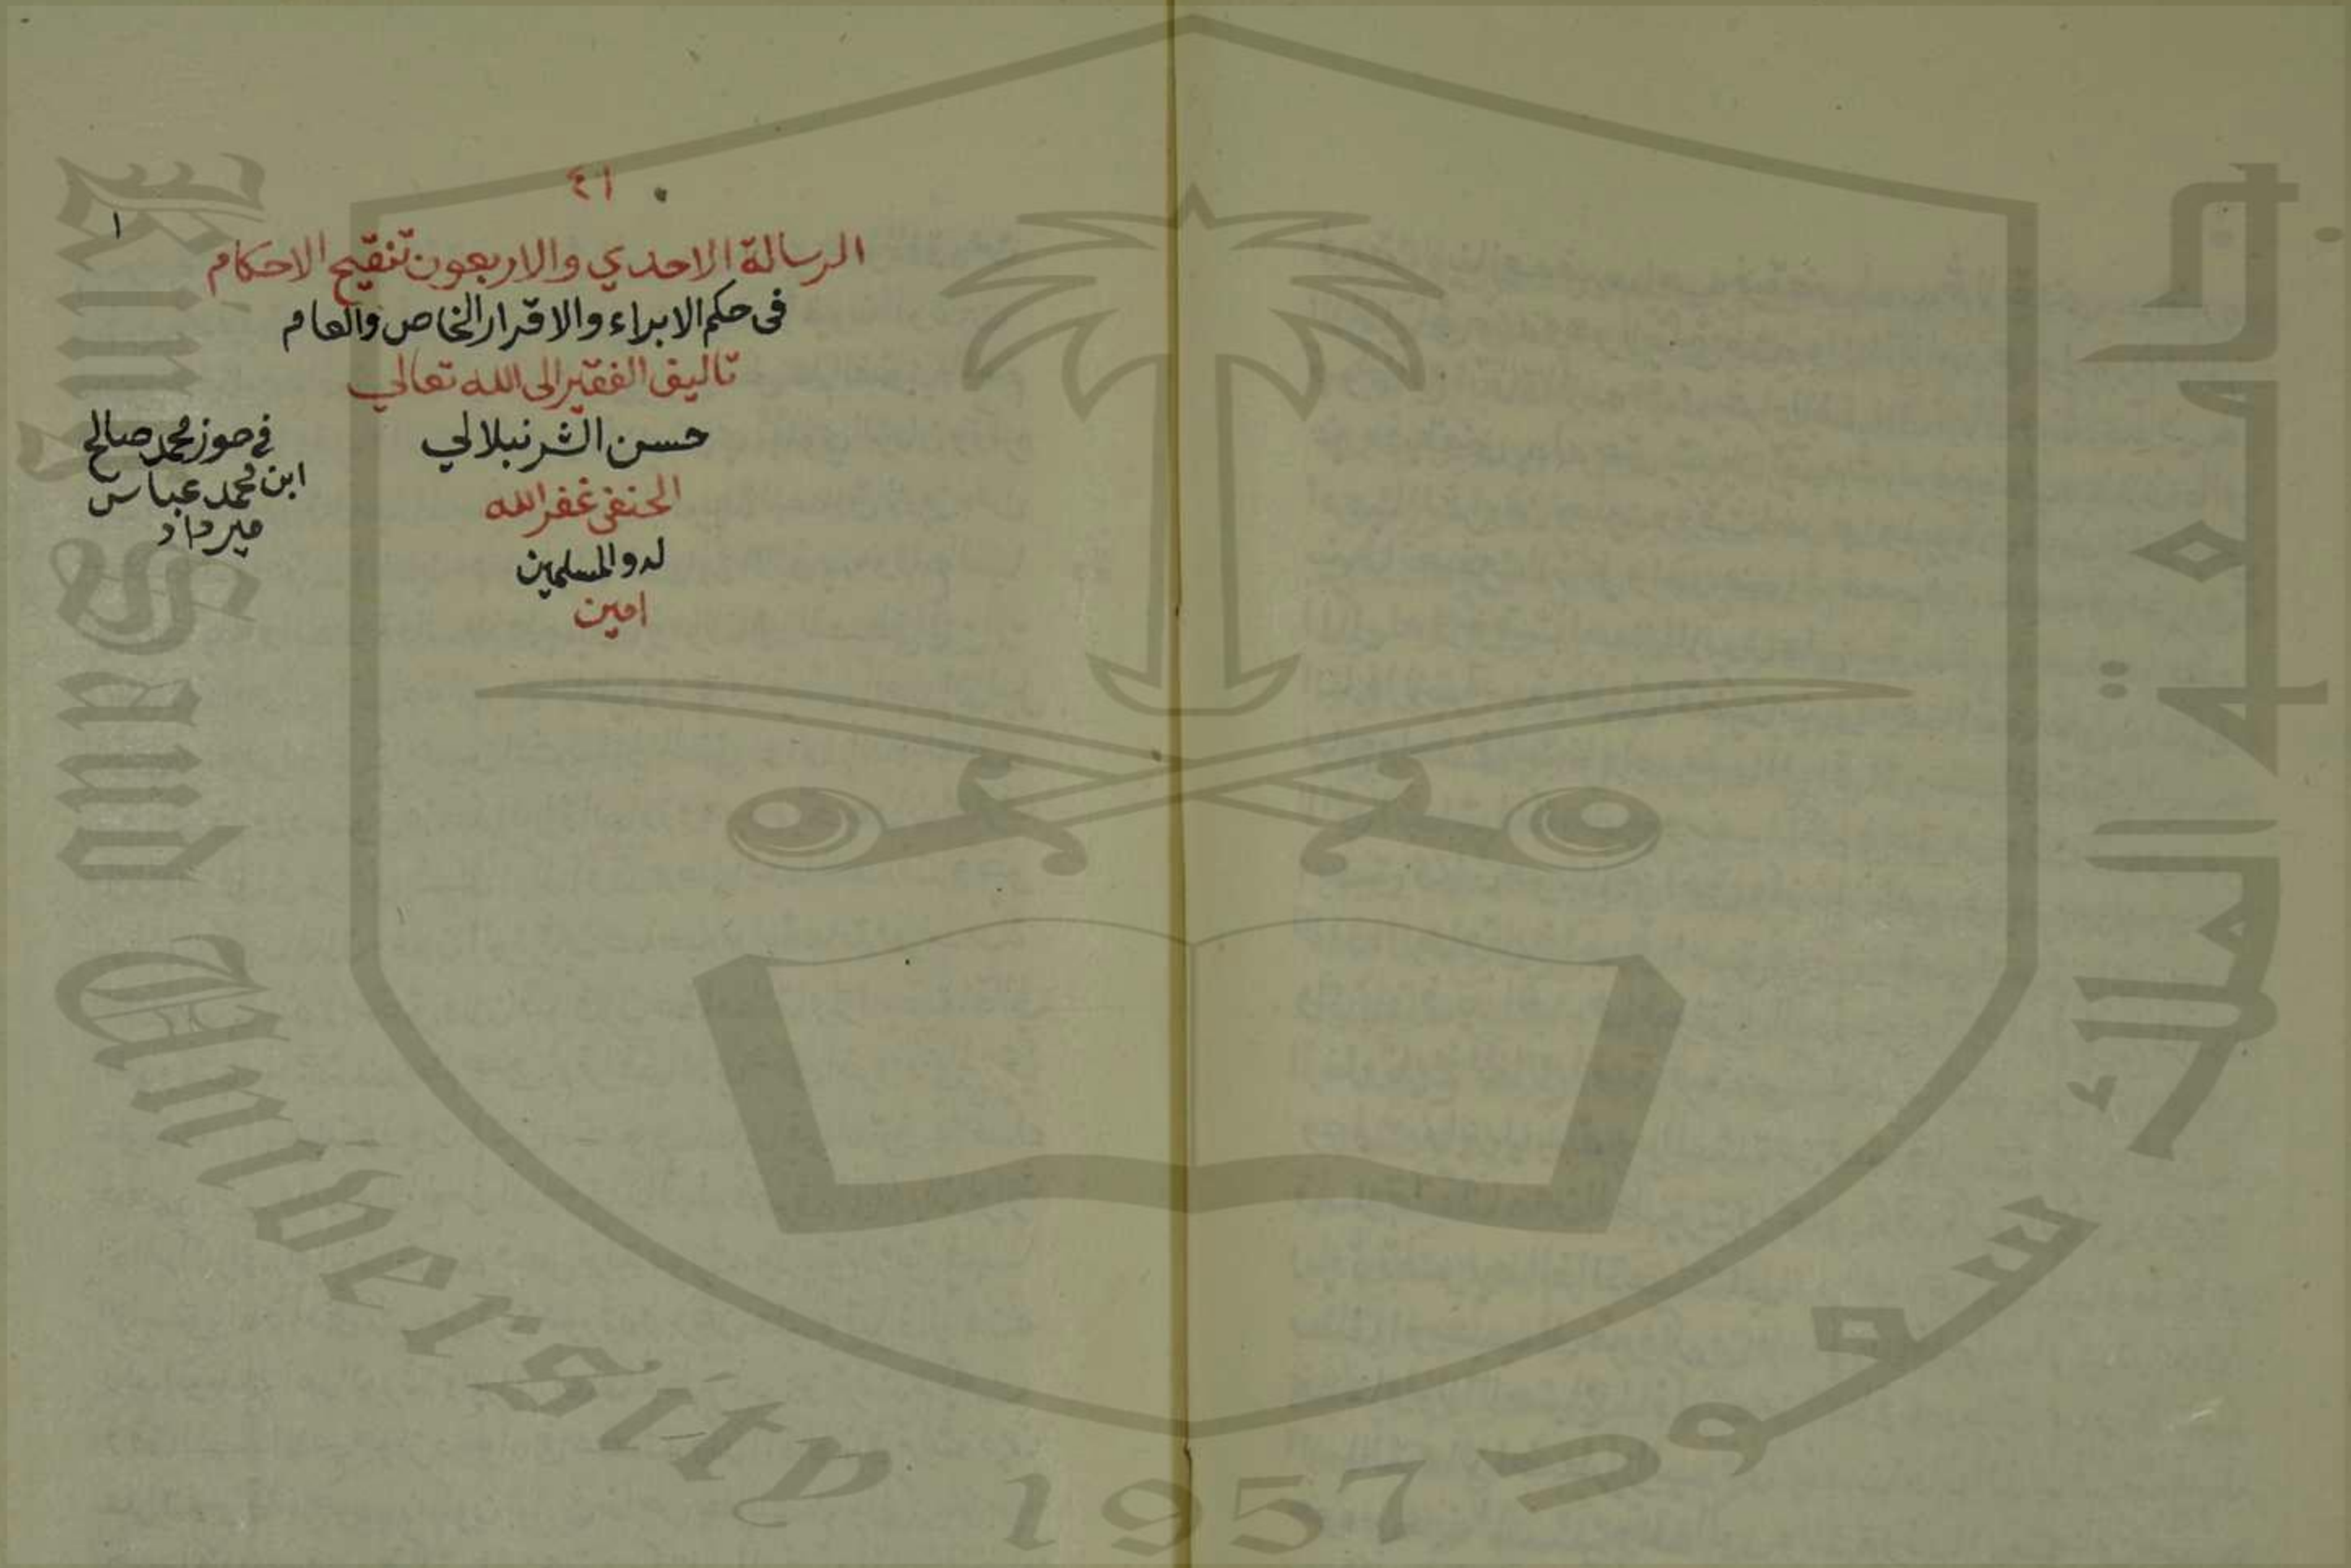 ٤١
١
الرسالة الاحدي والاربعون تنقيح الاحكام
فى حكم الابراء والاقرار الخاص والعام
تاليف الفقير الى الله تعالي
حسن الشرنبلالي
الحنفى غفر الله
له وللمسلمين
امين
في حوز محمد صالح
ابن محمد عباس
ميرداد
King Saud University
1957
جامعة الملك سعود